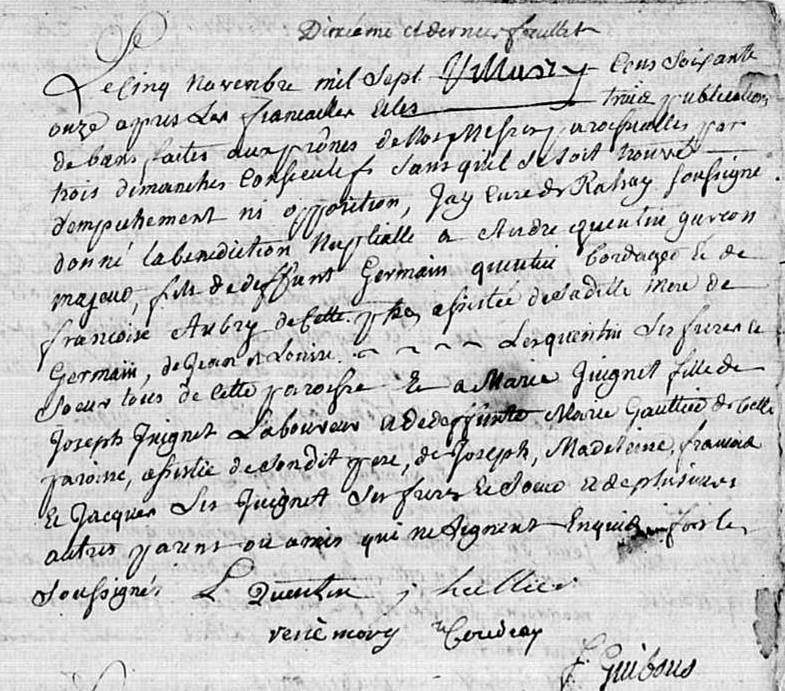 Dixième et dernier feuillet
Le cinq novembre mil sept cens soixante
onze apres les fiancailles et les trois publications
de bans faites aux prônes de Nos Messes paroissialles par
trois dimanches consecutifs sans qu'il se soit trouvé
dempechement ni opposition, Jay Curé de Rahay soussigné
donné la benediction Nuptialle a Andre quentin garcon
majeur, fils de deffunt Germain quentin bordager & de
francoise Aubry de cette psse, assistée de sadille Mere de
Germain, de Jean et Louise Les quentin ses freres &
soeur tous de cette paroisse Et a Marie Juignet fille de
Joseph Juignet Laboureur & de deffunte Marie Gaultier de cette
paroisse, assistée de sondit pere, de Joseph, Madeleine, francoise
& Jacques Les Juignet ses freres & soeurs & de plusieurs
autres parens ou amis qui ne signent Enquis fors les
soussignés L Quentin j hellier
rené mory Coudray
f Guibous